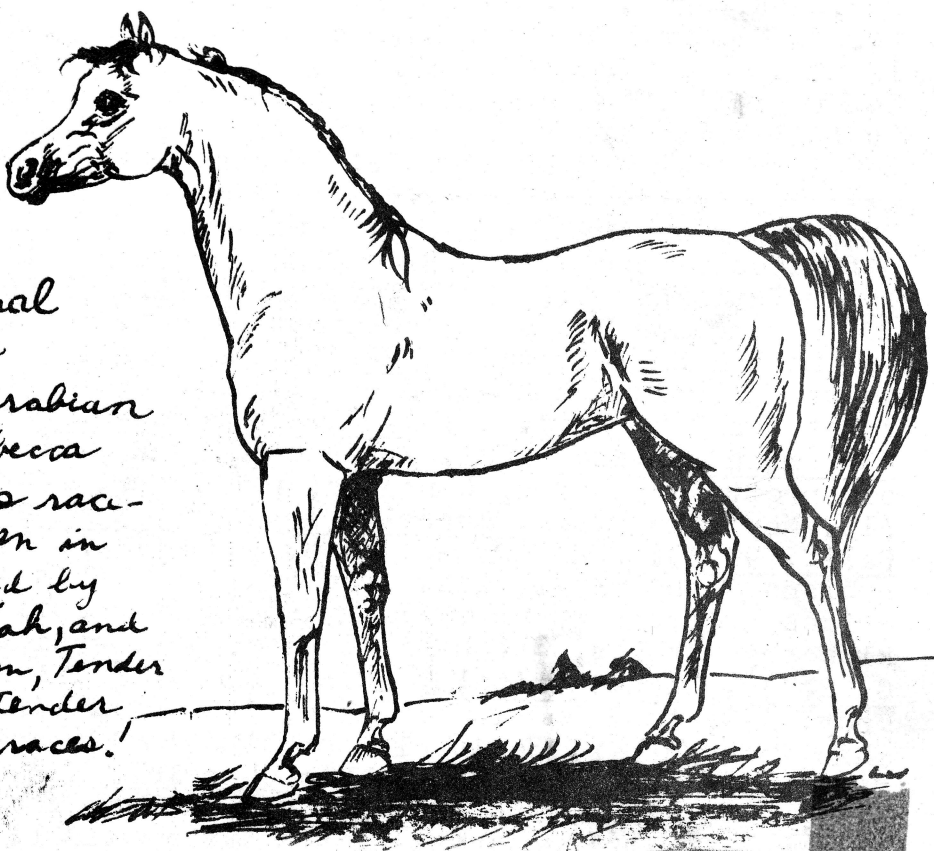 rabian
becca
race-
in
d by
ah, and
n, Tender
tender
races!